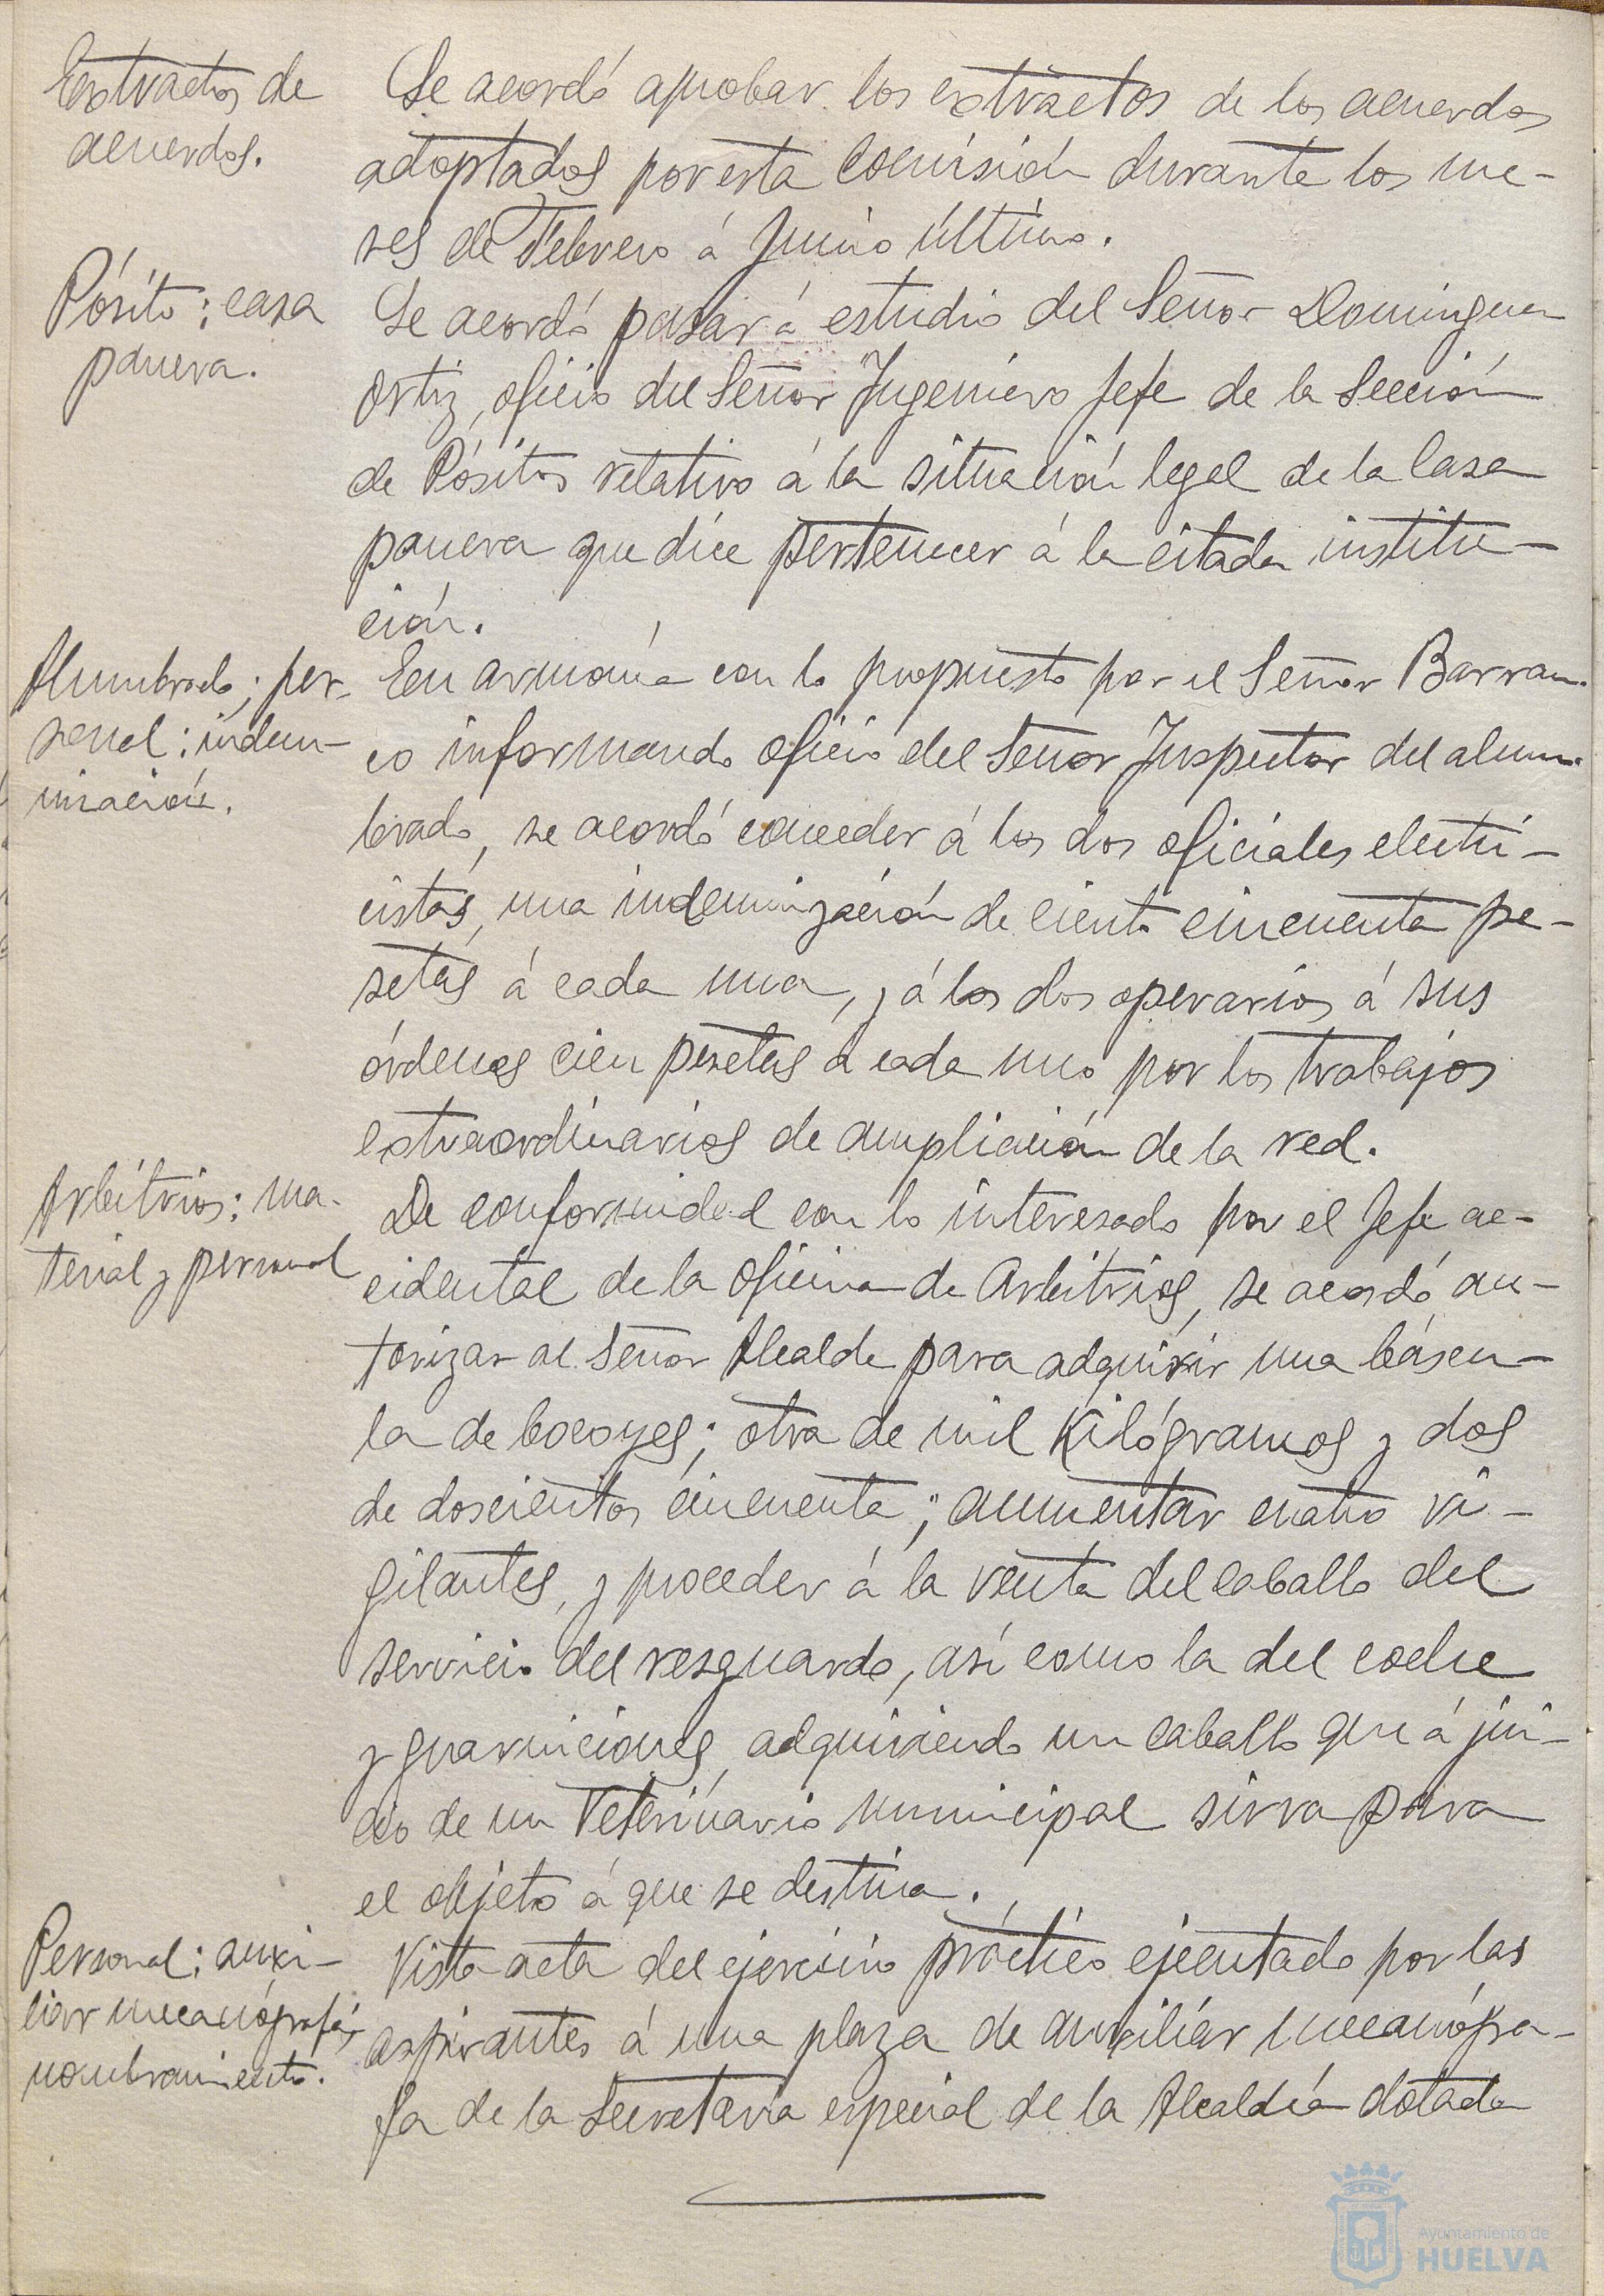 Extractos de
acuerdos.
Se acordó aprobar los extractos de los acuerdos
adoptados por esta Comisión durante los me-
ses de Febrero á Junio último.
Pósito; casa
panera.
Se acordó pasar á estudio del Señor Dominguez
Ortiz, oficio del Señor Ingeniero Jefe de la Sección
de Pósitos relativo á la situación legal de la Casa
panera que dice pertenecer á la citada institu-
ción.
Alumbrado; per-
sonal: indem-
nización.
En armonía con lo propuesto por el Señor Barran-
co informando oficio del Señor Inspector del alum-
brado, se acordó conceder á los dos oficiales electri-
cistas, una indemnización de ciento cincuenta pe-
setas á cada uno, y á los dos operarios á sus
órdenes cien pesetas a cada uno por los trabajos
extraordinarios de ampliación de la red.
Arbitrios: ma-
terial y personal
De conformidad con lo interesado por el Jefe ac-
cidental de la oficina de Arbitrios, se acordó au-
torizar al Señor Alcalde para adquirir una báscu-
la de bocoyes; otra de mil Kilógramos y dos
de doscientos cincuenta; aumentar cuatro vi-
gilantes, y proceder á la venta del caballo del
servicio del resguardo, así como la del coche
y guarniciones, adquiriendo un caballo que á jui-
cio de un Veterinario municipal sirva para
el objeto á que se destina.
Personal; auxi-
liar mecanógrafa;
nombramiento.
Vista acta del ejercicio práctico ejecutado por las
aspirantes á una plaza de auxiliar mecanógra-
fa de la Secretaría especial de la Alcaldía dotada
Ayuntamiento de
HUELVA